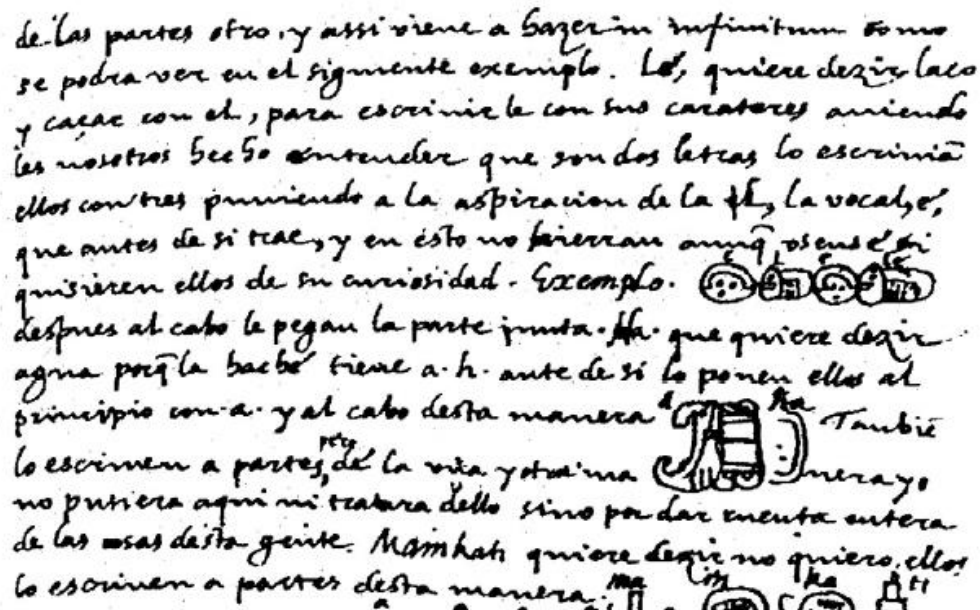 de las partes otro, y assi viene a hazer in infinitum como
se podra ver en el siguiente exemplo. Lé, quiere dezir laço
y caçar con el, para escrivirle con sus carateres aviendo
les nosotros hecho entender que son dos letras lo escrivian
ellos con tres puniendo a la aspiracion de la l, la vocal, é,
que antes de si trae, y en esto no hierran aunq̃ usense si
quisieren ellos de su curiosidad. Exemplo. e l e lé
despues al cabo le pegan la parte junta. Ha. que quiere dezir
agua porq̃ la haché tiene a. h. ante de si lo ponen ellos al
principio con. a. y al cabo desta manera a ha Tanbiē
lo escriven a partes, pero de la una y otra ma nera yo
no pusiera aqui ni tratara dello sino por dar cuenta entera
de las cosas desta gente. Mainkati quiere dezir no quiero, ellos
lo escriven a partes desta manera. ma in ka ti
a